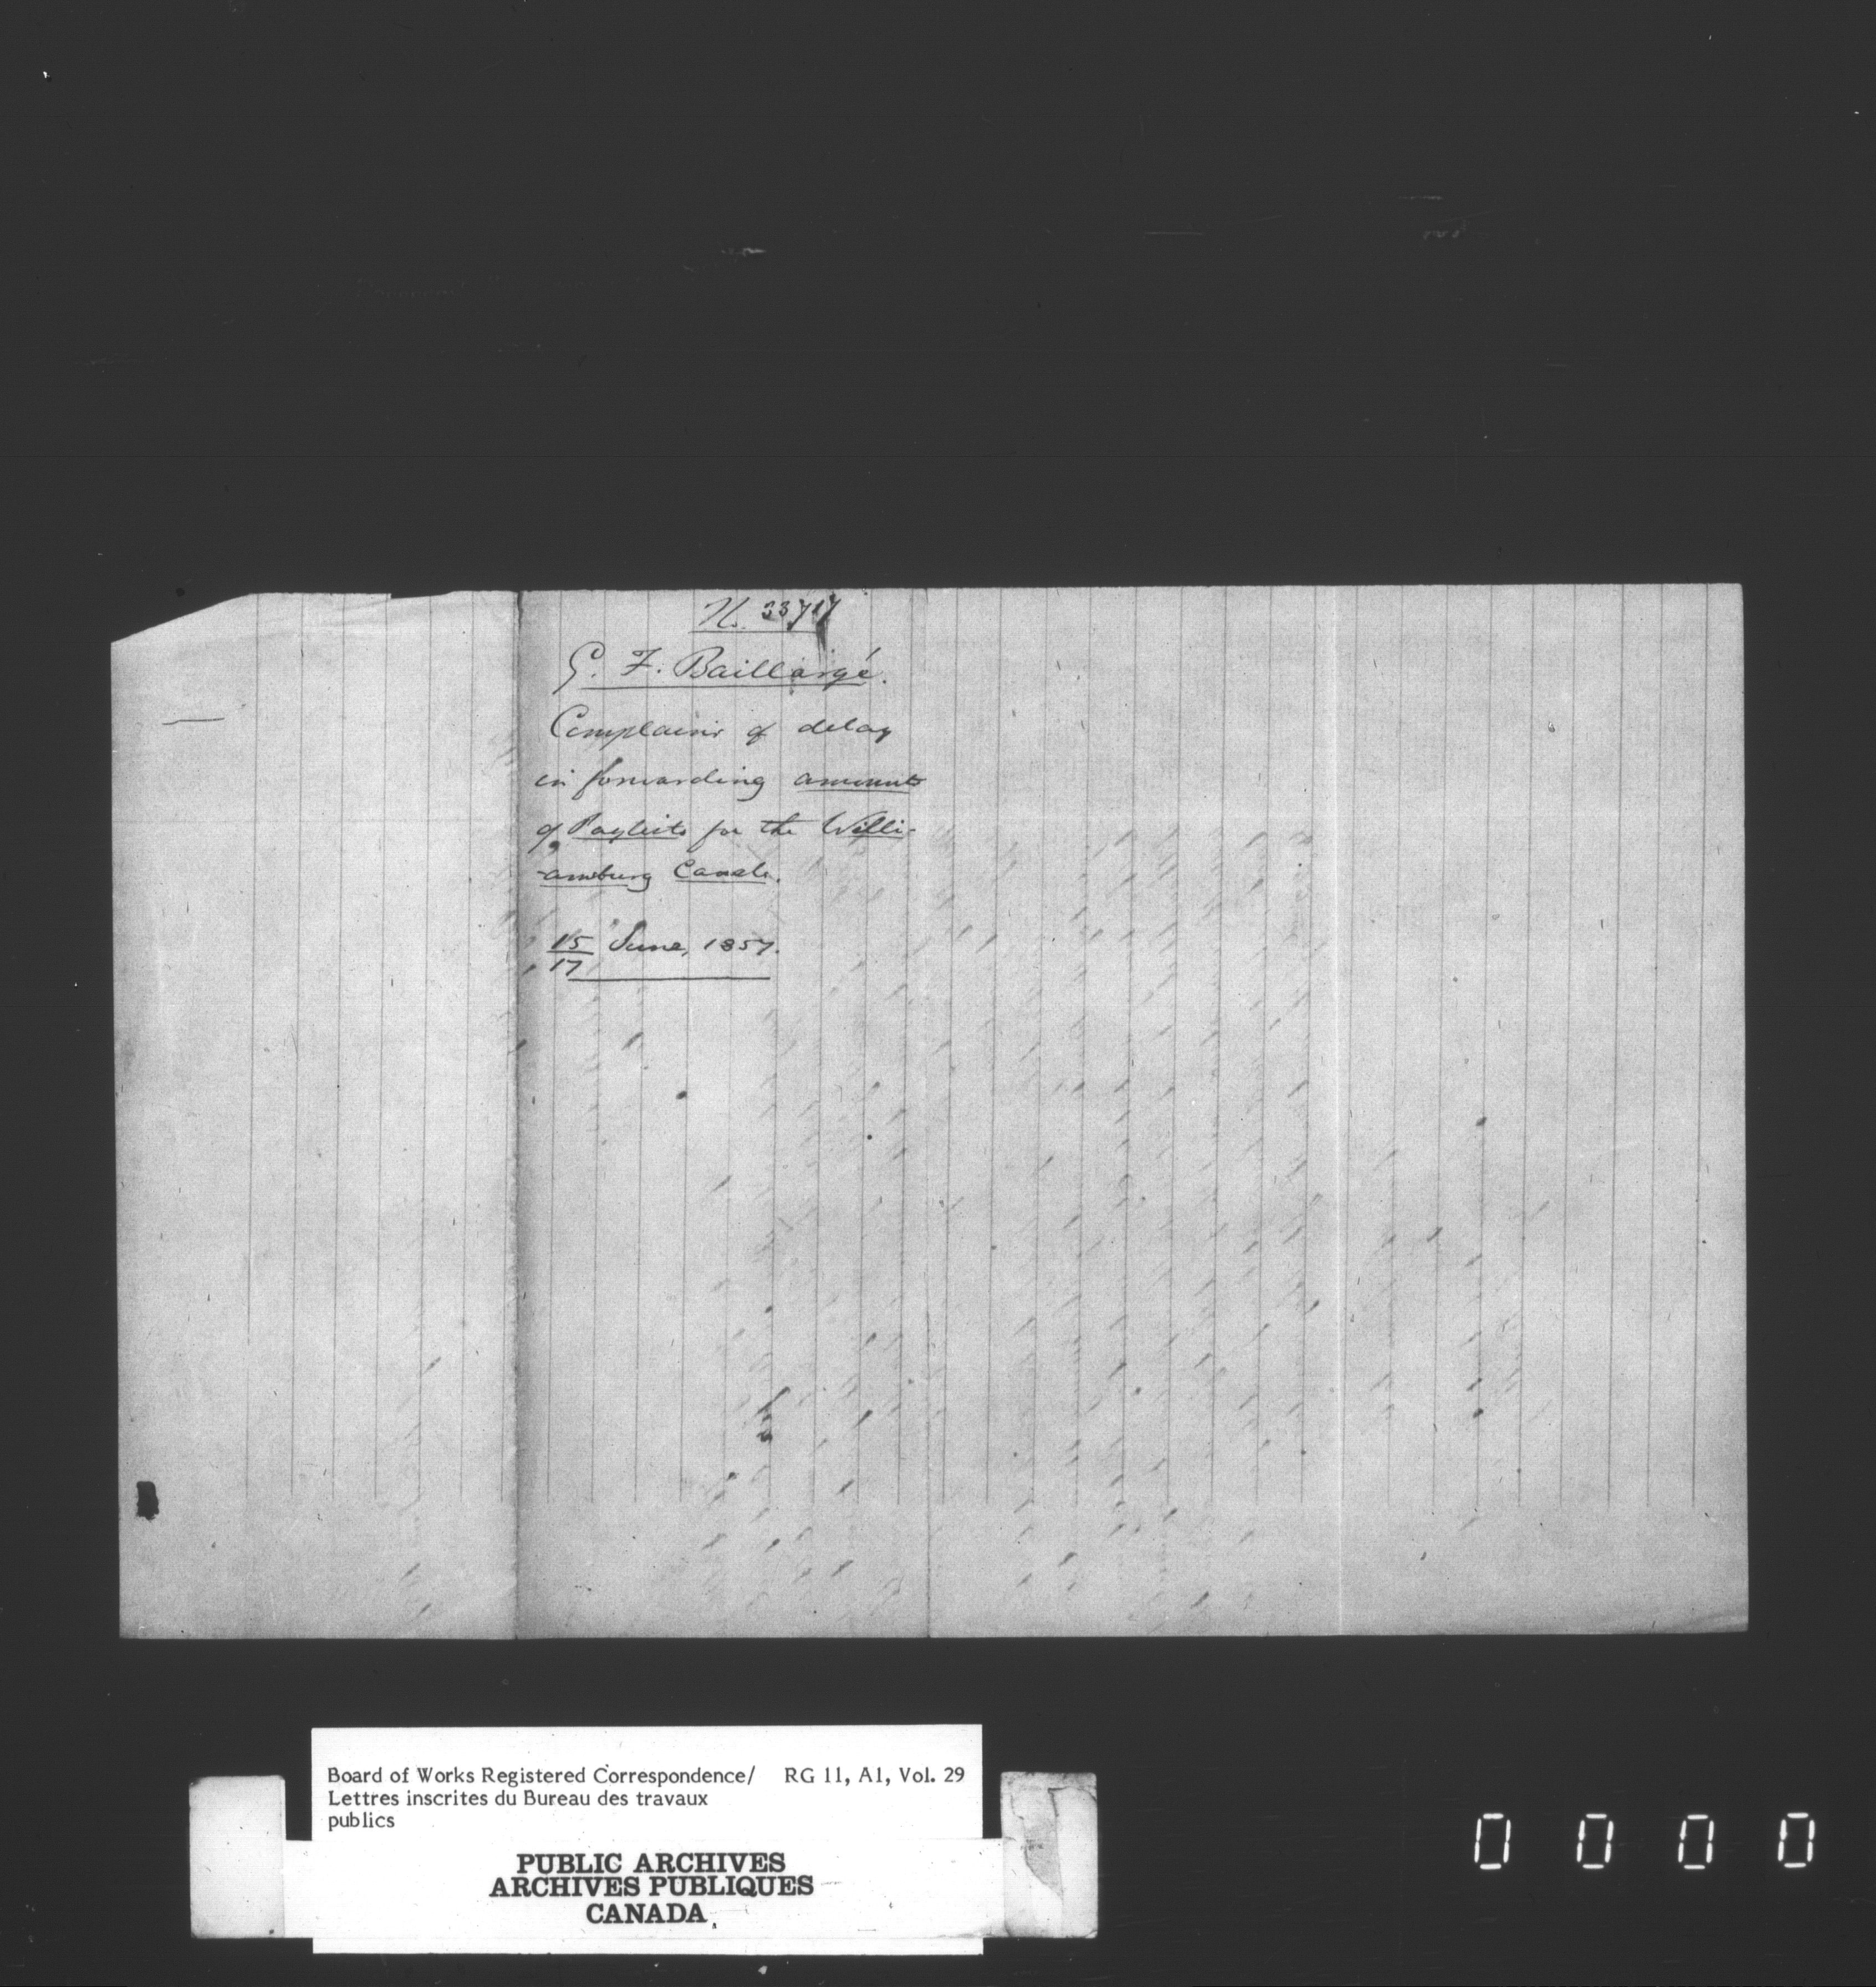 No. 33717
G. F. Baillargé.
Complains of delay
in forwarding amounts
of Paylists for the Willi-
-amsburg Canals.
15/17 June, 1857.
Board of Works Registered Correspondence/ RG 11, A1, Vol. 29
Lettres inscrites du Bureau des travaux
publics
PUBLIC ARCHIVES
ARCHIVES PUBLIQUES
CANADA
0 0 0 0